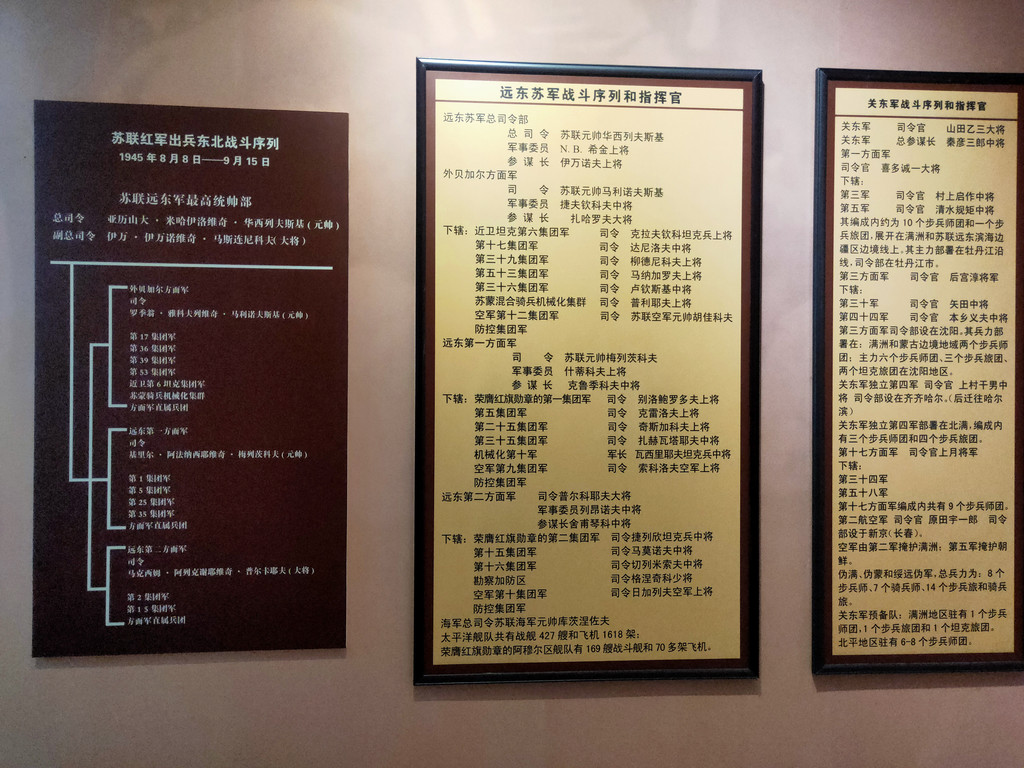 苏联红军出兵东北战斗序列
1945年8月8日——9月15日
苏联远东军最高统帅部
总司令 亚历山大·米哈伊洛维奇·华西列夫斯基(元帅)
副总司令 伊万·伊万诺维奇·马斯连尼科夫(大将)
外贝加尔方面军
司令
罗季翁·雅科夫列维奇·马利诺夫斯基(元帅)
第17集团军
第36集团军
第39集团军
第53集团军
近卫第6坦克集团军
苏蒙骑兵机械化集群
方面军直属兵团
远东第一方面军
司令
基里尔·阿法纳西耶维奇·梅列茨科夫(元帅)
第1集团军
第5集团军
第25集团军
第35集团军
方面军直属兵团
远东第二方面军
司令
马克西姆·阿列克谢耶维奇·普尔卡耶夫(大将)
第2集团军
第15集团军
方面军直属兵团
远东苏军战斗序列和指挥官
远东苏军总司令部
总司令 苏联元帅华西列夫斯基
军事委员 N.B.希金上将
参谋长 伊万诺夫上将
外贝加尔方面军
司令 苏联元帅马利诺夫斯基
军事委员 捷夫钦科夫中将
参谋长 扎哈罗夫大将
下辖：近卫坦克第六集团军 司令 克拉夫钦科坦克兵上将
第十七集团军 司令 达尼洛夫中将
第三十九集团军 司令 柳德尼科夫上将
第五十三集团军 司令 马纳加罗夫上将
第三十六集团军 司令 卢钦斯基中将
苏蒙混合骑兵机械化集群 司令 普利耶夫上将
空军第十二集团军 司令 苏联空军元帅胡佳科夫
防控集团军
远东第一方面军
司令 苏联元帅梅列茨科夫
军事委员 什蒂科夫上将
参谋长 克鲁季科夫中将
下辖：荣膺红旗勋章的第一集团军 司令 别洛鲍罗多夫上将
第五集团军 司令 克雷洛夫上将
第二十五集团军 司令 奇斯加科夫上将
第三十五集团军 司令 扎赫瓦塔耶夫中将
机械化第十军 军长 瓦西里耶夫坦克兵中将
空军第九集团军 司令 索科洛夫空军上将
防控集团军
远东第二方面军 司令普尔科耶夫大将
军事委员列昂诺夫中将
参谋长舍甫琴科中将
下辖：荣膺红旗勋章的第二集团军 司令捷列欣坦克兵中将
第十五集团军 司令马莫诺夫中将
第十六集团军 司令切列米索夫中将
勘察加防区 司令格涅奇科少将
空军第十集团军 司令日加列夫空军上将
防控集团军
海军总司令苏联海军元帅库茨涅佐夫
太平洋舰队共有战舰427艘和飞机1618架；
荣膺红旗勋章的阿穆尔区舰队有169艘战斗舰和70多架飞机。
关东军战斗序列和指挥官
关东军 司令官 山田乙三大将
关东军 总参谋长 秦彦三郎中将
第一方面军
司令官 喜多诚一大将
下辖：
第三军 司令官 村上启作中将
第五军 司令官 清水规矩中将
其编成内约为10个步兵师团和一个步
兵旅团，展开在满洲和苏联远东滨海边
疆区边境线上，其主力部署在牡丹江沿
线，司令部在牡丹江市。
第三方面军 司令官 后宫淳将军
下辖：
第三十军 司令官 矢田中将
第四十四军 司令官 本乡义夫中将
第三方面军司令部设在沈阳，其兵力部
署在：满洲和蒙古边境地域两个步兵师
团；主力六个步兵师团、三个步兵旅团、
两个坦克旅团在沈阳地区。
关东军独立第四军 司令官 上村干男中
将 司令部设在齐齐哈尔。(后迁往哈尔
滨)
关东军独立第四军部署在北满，编成内
有三个步兵师团和四个步兵旅团。
第十七方面军 司令官上月将军
下辖：
第三十四军
第五十八军
第十七方面军编成内共有9个步兵师团。
第二航空军 司令官 原田宇一郎 司令
部设于新京(长春)。
空军由第二军掩护满洲；第五军掩护朝
鲜。
伪满、伪蒙和绥远伪军，总兵力为：8个
步兵师、7个骑兵师、14个步兵旅和骑兵
旅。
关东军预备队：满洲地区驻有1个步兵
师团，1个步兵旅团和1个坦克旅团。
北平地区驻有6-8个步兵师团。